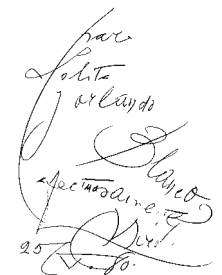 para
Lolita
orlando
Blanco
afectuosamente
25